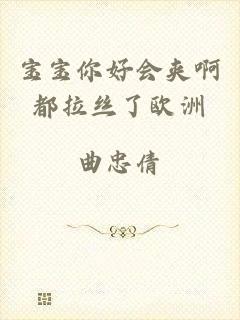 宝宝你好会夹啊
都拉丝了欧洲
曲忠倩